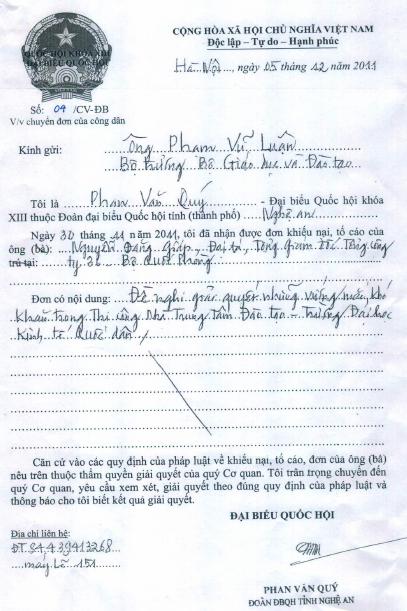 CỘNG HÒA XÃ HỘI CHỦ NGHĨA VIỆT NAM
Độc lập – Tự do – Hạnh phúc
QUỐC HỘI KHÓA XIII
ĐẠI BIỂU QUỐC HỘI
Hà Nội..., ngày 05 tháng 12 năm 2011
Số: 04 /CV-ĐB
V/v chuyển đơn của công dân
Kính gửi: Ông Phạm Vũ Luận
Bộ trưởng Bộ Giáo dục và Đào tạo
Tôi là Phan Văn Quý - Đại biểu Quốc hội khóa
XIII thuộc Đoàn đại biểu Quốc hội tỉnh (thành phố) Nghệ an
Ngày 30 tháng 11 năm 2011, tôi đã nhận được đơn khiếu nại, tố cáo của
ông (bà): Nguyễn Đăng Giáp - Đại tá, Tổng Giám đốc Tổng công
trú tại: ty 36 Bộ Quốc Phòng
Đơn có nội dung: Đề nghị giải quyết những vướng mắc, khó
khăn trong Thi công Nhà Trung Tâm Đào tạo - Trường Đại học
Kinh tế Quốc dân
Căn cứ vào các quy định của pháp luật về khiếu nại, tố cáo, đơn của ông (bà)
nêu trên thuộc thẩm quyền giải quyết của quý Cơ quan. Tôi trân trọng chuyển đến
quý Cơ quan, yêu cầu xem xét, giải quyết theo đúng quy định của pháp luật và
thông báo cho tôi biết kết quả giải quyết.
ĐẠI BIỂU QUỐC HỘI
Địa chỉ liên hệ:
ĐT. 84.439413268
máy lẻ 151
PHAN VĂN QUÝ
ĐOÀN ĐBQH TỈNH NGHỆ AN